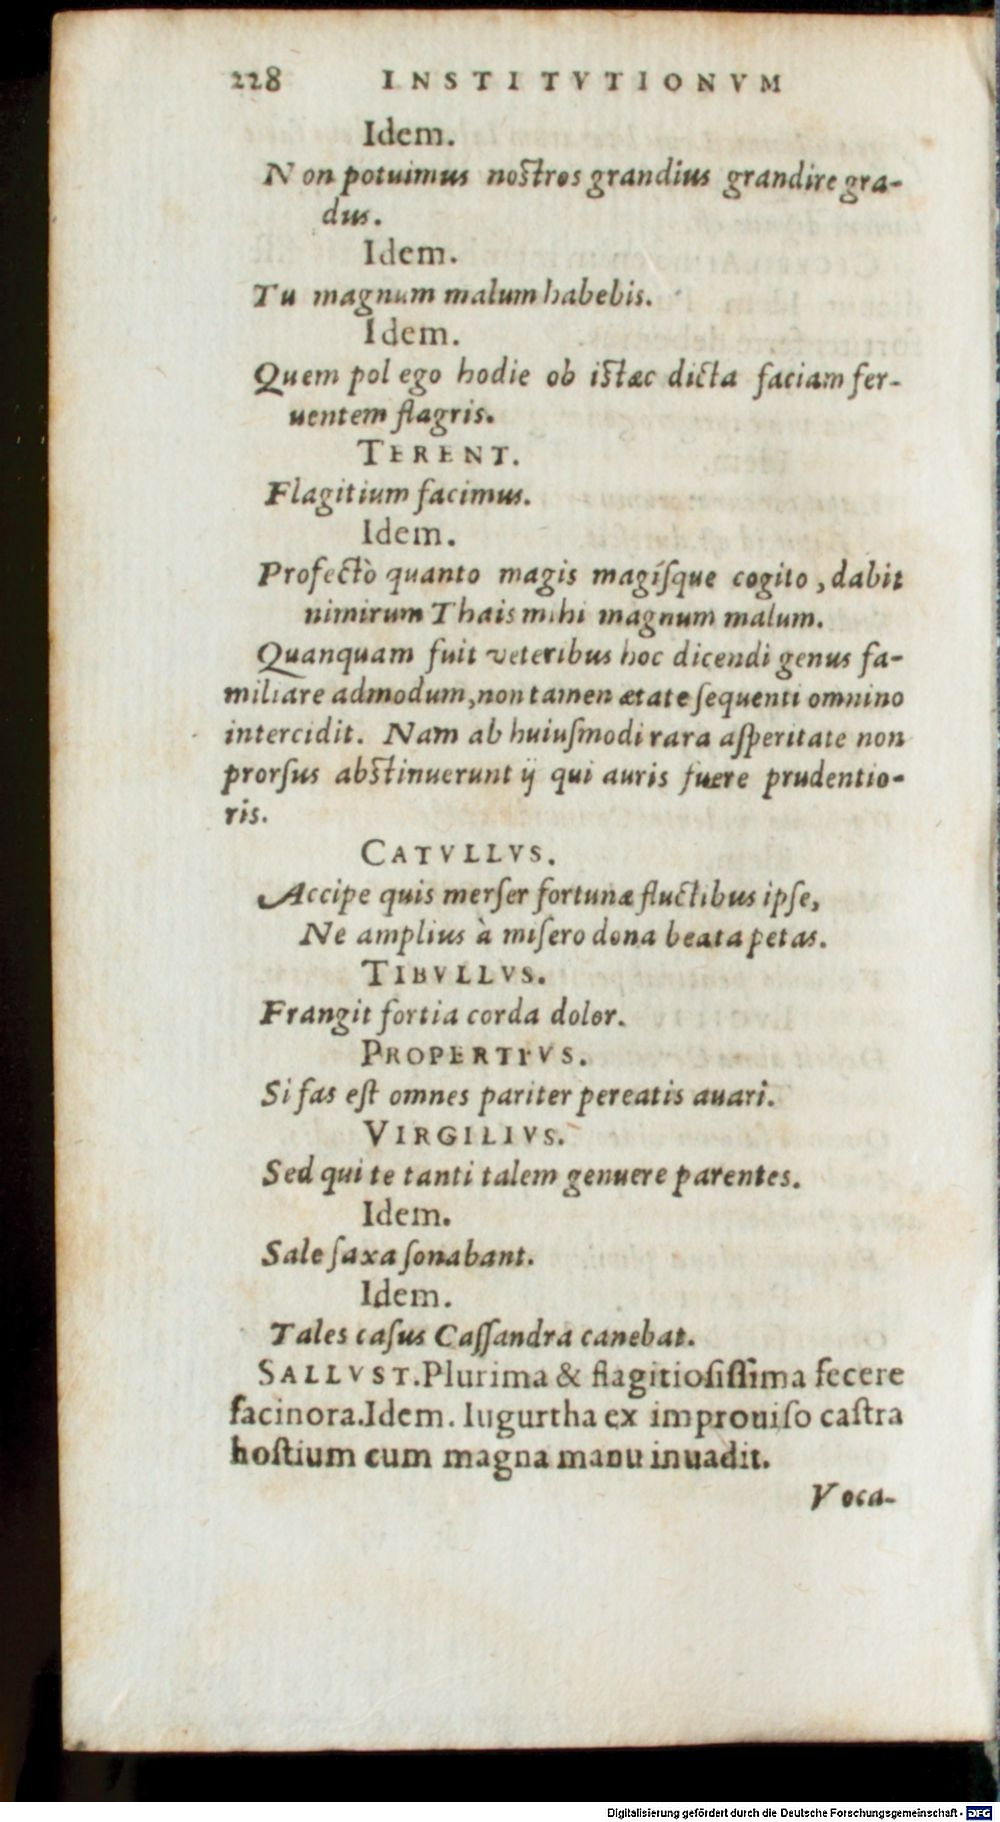 228 INSTITVTIONVM
Idem.
Non potuimus nostros grandius grandire gra-
dus.
Idem.
Tu magnum malum habebis.
Idem.
Quem pol ego hodie ob istæc dicta faciam fer-
uentem flagris.
TERENT.
Flagitium facimus.
Idem.
Profectò quanto magis magíſque cogito, dabit
nimirum Thais mihi magnum malum.
Quanquam fuit veteribus hoc dicendi genus fa-
miliare admodum, non tamen ætate ſequenti omnino
intercidit. Nam ab huiuſmodi rara aſperitate non
prorſus abstinuerunt ij qui auris fuere prudentio-
ris.
CATVLLVS.
Accipe quis merſer fortunæ fluctibus ipſe,
Ne amplius à miſero dona beata petas.
TIBVLLVS.
Frangit fortia corda dolor.
PROPERTIVS.
Si fas eſt omnes pariter pereatis auari.
VIRGILIVS.
Sed qui te tanti talem genuere parentes.
Idem.
Sale ſaxa ſonabant.
Idem.
Tales caſus Caſſandra canebat.
SALLVST. Plurima & flagitioſiſſima fecere
facinora. Idem. Iugurtha ex improuiſo caſtra
hoſtium cum magna manu inuadit.
Voca-
Digitalisierung gefördert durch die Deutsche Forschungsgemeinschaft - DFG